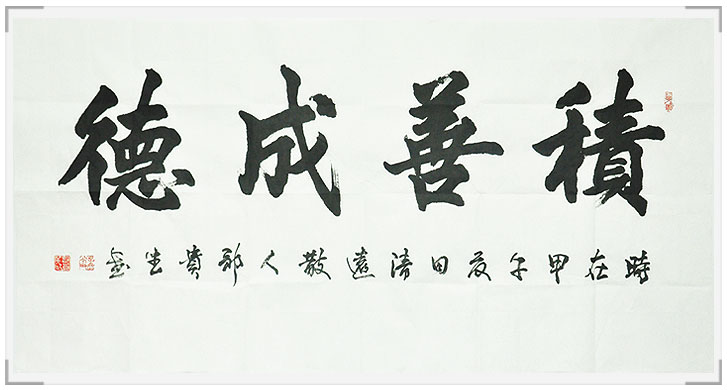 積善成德
時在甲午夏日清遠散人貴